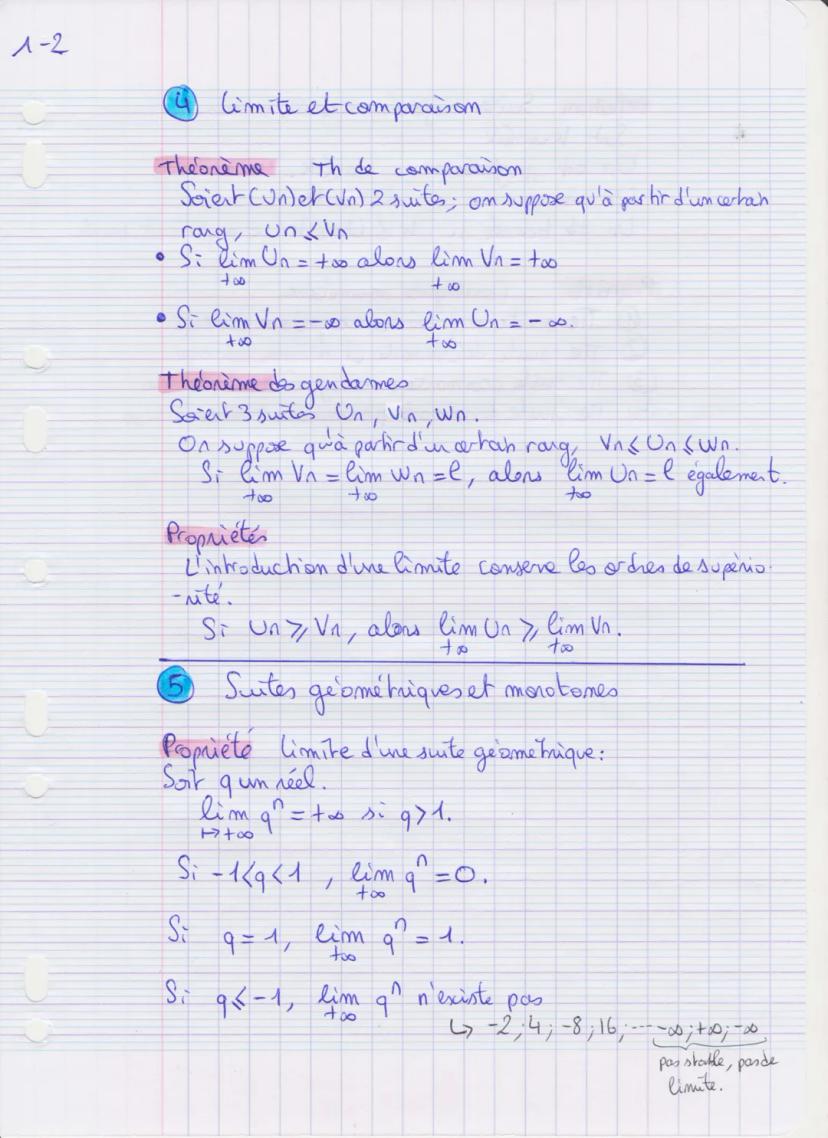 1-2
4 Limite et comparaison
Théorème Th de comparaison
Soient (Un) et (Vn) 2 suites ; on suppose qu'à partir d'un certain
rang, Un ⩽ Vn
• Si lim Un = +∞ alors lim Vn = +∞
+∞ +∞
• Si lim Vn = -∞ alors lim Un = -∞.
+∞ +∞
Théorème des gendarmes
Soient 3 suites Un, Vn, Wn.
On suppose qu'à partir d'un certain rang, Vn ⩽ Un ⩽ Wn.
Si lim Vn = lim Wn = l, alors lim Un = l également.
+∞ +∞ +∞
Propriétés
L'introduction d'une limite conserve les ordres de supério-
-rité.
Si Un ⩾ Vn, alors lim Un ⩾ lim Vn.
+∞ +∞
5 Suites géométriques et monotones
Propriété Limite d'une suite géométrique :
Soit q un réel.
lim qⁿ = +∞ si q > 1.
↦+∞
Si -1<q<1, lim qⁿ = 0.
+∞
Si q = 1, lim qⁿ = 1.
+∞
Si q ⩽ -1, lim qⁿ n'existe pas
+∞
↳ -2 ; 4 ; -8 ; 16 ; ---- -∞ ; +∞ ; -∞
pas stable, pas de
limite.